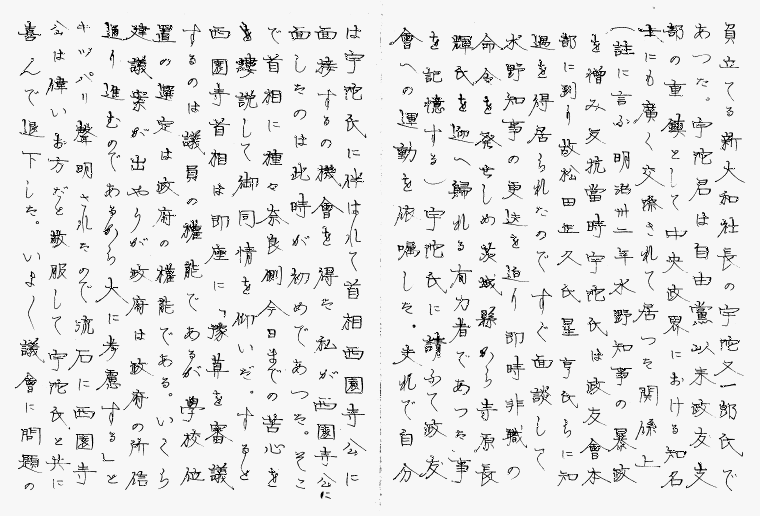 員立てる新大和社長の宇陀又一郎氏で
あつた。宇陀君は自由黨以来政友支
部の重鎮として中央政界における知名
士にも廣く交際されて居つた関係上
(註に言ふ明治卅二年水野知事の暴政
を憎み反抗當時宇陀氏は政友會本
部に到り故松田正久氏星亨氏らに知
遇を得居られたのですぐ面談して
水野知事の更迭を迫り即時非職の
命令を発せしめ茨城縣から寺原長
輝氏を迎へ歸れる有力者であつた事
を記憶する)宇陀氏に請ふて政友
會への運動を依嘱した。夫れで自分
は宇陀氏に伴はれて首相西園寺公に
面接するの機會を得た私が西園寺公に
面したのは此時が初めであつた。そこ
で首相に種々奈良側今日までの苦心を
を縷説して御同情を仰いだ。すると
西園寺首相は即座に「豫算を審議
するのは議員の權能であるが學校位
置の選定は政府の權能である。いくら
建議案が出やうが政府は政府の所信
通り進むのであるから大に考慮する」と
キッパリ聲明されたので流石に西園寺
公は偉いお方だと敬服して宇陀氏と共に
喜んで退下した。いよ〱議會に問題の